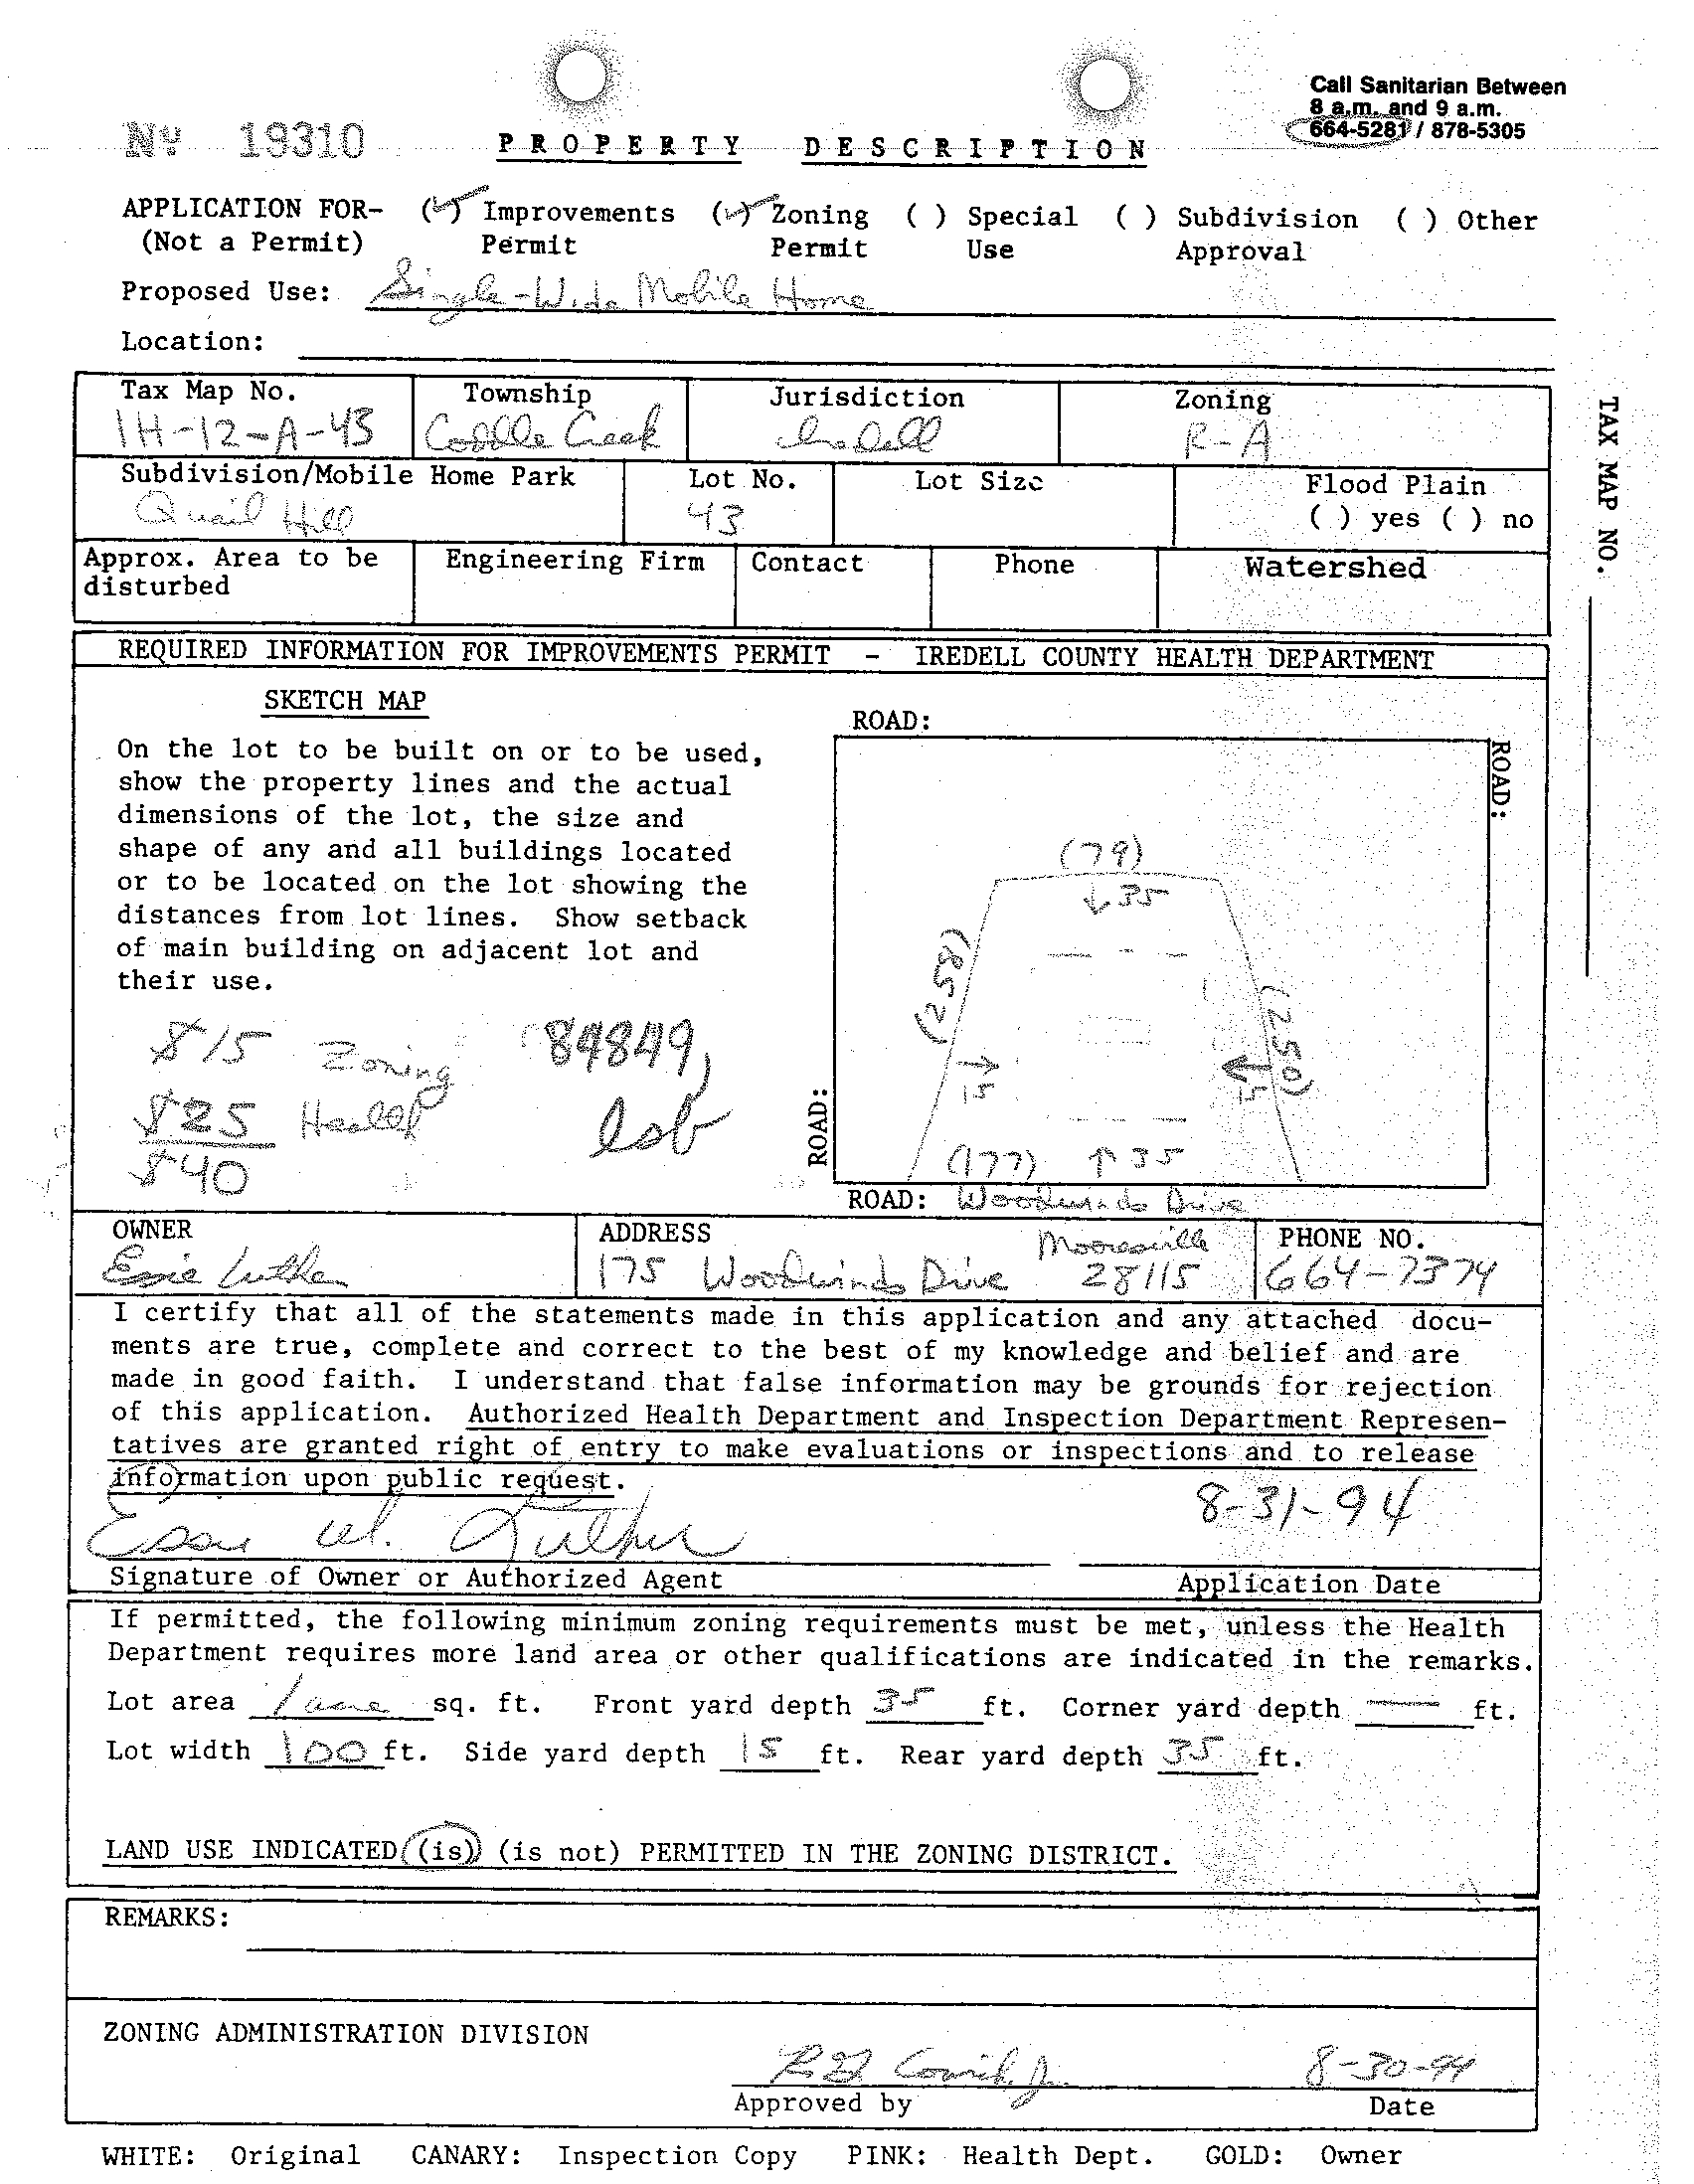 Call Sanitarian Between
8 a.m. and 9 a.m.
664-5281 / 878-5305
Nº 19310
PROPERTY DESCRIPTION
APPLICATION FOR- (✓) Improvements (✓) Zoning ( ) Special ( ) Subdivision ( ) Other
(Not a Permit) Permit Permit Use Approval
Proposed Use: Single-Wide Mobile Home
Location:
Tax Map No. Township Jurisdiction Zoning
1H-12-A-43 Coddle Creek Iredell R-A
Subdivision/Mobile Home Park Lot No. Lot Size Flood Plain
Quail Hill 43 ( ) yes ( ) no
Approx. Area to be Engineering Firm Contact Phone Watershed
disturbed
TAX MAP NO.
REQUIRED INFORMATION FOR IMPROVEMENTS PERMIT - IREDELL COUNTY HEALTH DEPARTMENT
SKETCH MAP
On the lot to be built on or to be used,
show the property lines and the actual
dimensions of the lot, the size and
shape of any and all buildings located
or to be located on the lot showing the
distances from lot lines. Show setback
of main building on adjacent lot and
their use.
$15 Zoning
$25 Health
$40
84849
lsb
ROAD:
ROAD:
(79)
↓ 35
(258)
(250)
→
15
←
15
ROAD:
(177) ↑ 35
ROAD: Woodwinds Drive
OWNER ADDRESS PHONE NO.
Essie Luther 175 Woodwinds Drive Mooresville 28115 664-7374
I certify that all of the statements made in this application and any attached docu-
ments are true, complete and correct to the best of my knowledge and belief and are
made in good faith. I understand that false information may be grounds for rejection
of this application. Authorized Health Department and Inspection Department Represen-
tatives are granted right of entry to make evaluations or inspections and to release
information upon public request.
Essie W. Luther 8-31-94
Signature of Owner or Authorized Agent Application Date
If permitted, the following minimum zoning requirements must be met, unless the Health
Department requires more land area or other qualifications are indicated in the remarks.
Lot area 1 acre sq. ft. Front yard depth 35 ft. Corner yard depth — ft.
Lot width 100 ft. Side yard depth 15 ft. Rear yard depth 35 ft.
LAND USE INDICATED (is) (is not) PERMITTED IN THE ZONING DISTRICT.
REMARKS:
ZONING ADMINISTRATION DIVISION
8-30-94
Approved by Date
WHITE: Original CANARY: Inspection Copy PINK: Health Dept. GOLD: Owner